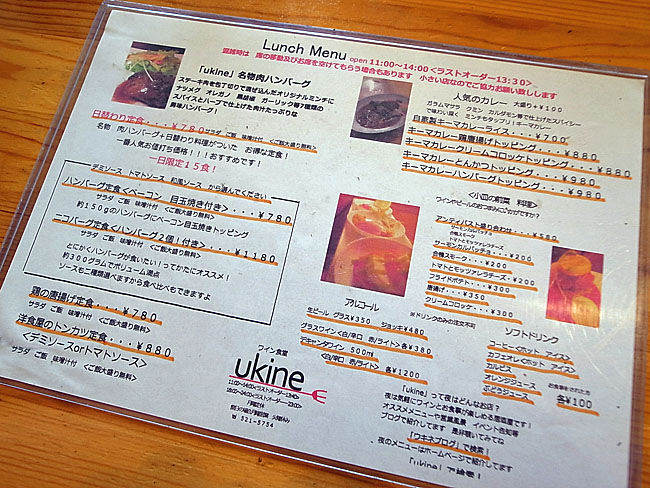 Lunch Menu open 11:00～14:00 <ラストオーダー13:30>
混雑時は 席の移動及びお席を空けてもらう場合もあります 小さい店なのでご協力お願い致します
「ukine」名物肉ハンバーグ
ステーキ肉を包丁切りで混ぜ込んだオリジナルミンチに
ナツメグ オレガノ 黒胡椒 ガーリック等7種類の
スパイスとハーブで仕上げた肉汁たっぷりな
美味ハンバーグ!
日替わり定食・・・¥780 サラダ ご飯 味噌汁付 <ご飯大盛り無料>
名物 肉ハンバーグ+日替わり料理がついた お得な定食!
一番人気お値打ち価格!!!おすすめです!
一日限定15食!
デミソース トマトソース 和風ソース から選んでください
ハンバーグ定食<ベーコン 目玉焼き付き>・・・¥780
サラダ ご飯 味噌汁付 <ご飯大盛り無料>
約150gのハンバーグにベーコン目玉焼きトッピング
ニコバーグ定食<ハンバーグ2個!付き>・・・¥1180
サラダ ご飯 味噌汁付 <ご飯大盛り無料>
とにかくハンバーグが食いたい!ってかたにオススメ!
約300グラムでボリューム満点
ソースも二種類選べますから食べ比べもできますよ
鶏の唐揚げ定食・・・¥780
サラダ ご飯 味噌汁付 <ご飯大盛り無料>
洋食屋のトンカツ定食・・・¥880
<デミソースorトマトソース>
サラダ ご飯 味噌汁付 <ご飯大盛り無料>
人気のカレー 大盛り+¥100
ガラムマサラ クミン カルダモン等で仕上たスパイシー
で味わい深く ミンチもタップリ!キーマカレー
自家製キーマカレーライス・・・¥700
キーマカレー鶏唐揚げトッピング・・・¥880
キーマカレークリームコロッケトッピング・・・¥880
キーマカレーとんかつトッピング・・・¥980
キーマカレーハンバーグトッピング・・・¥980
<小皿の前菜 料理>
ワインやビールのおつまみに合わせてですか?
アンティパスト盛り合わせ・・・¥580
サーモンカルパッチョ
合鴨スモーク
トマトとモッツァレラチーズ
サーモンカルパッチョ・・・¥200
合鴨スモーク・・・¥200
トマトとモッツァレラチーズ・・・¥200
フライドポテト・・・¥300
唐揚げ・・・¥350
クリームコロッケ・・・¥300
※ドリンクのみの注文不可
アルコール
生ビール グラス¥350 ジョッキ¥480
グラスワイン<白/辛口 赤/ライト>各¥380
デキャンタワイン 500ml
<白/辛口 赤/ライト>
各¥1200
ソフトドリンク
コーヒー<ホット アイス>
カフェオレ<ホット アイス>
カルピス
オレンジジュース
ぶどうジュース
お食事をされた方
各¥100
ワイン食堂
ukine
11:00～14:00<ラストオーダー13:30>
☎ 521-5754
「ukine」って夜はどんなお店?
夜は気軽にワインとお食事が楽しめる居酒屋です!
オススメメニューや営業風景 イベント告知等
ブログで紹介してます 是非覗いてみてね
「ウキネブログ」で検索!
夜のメニューはホームページで紹介してます
「ukine」で検索!